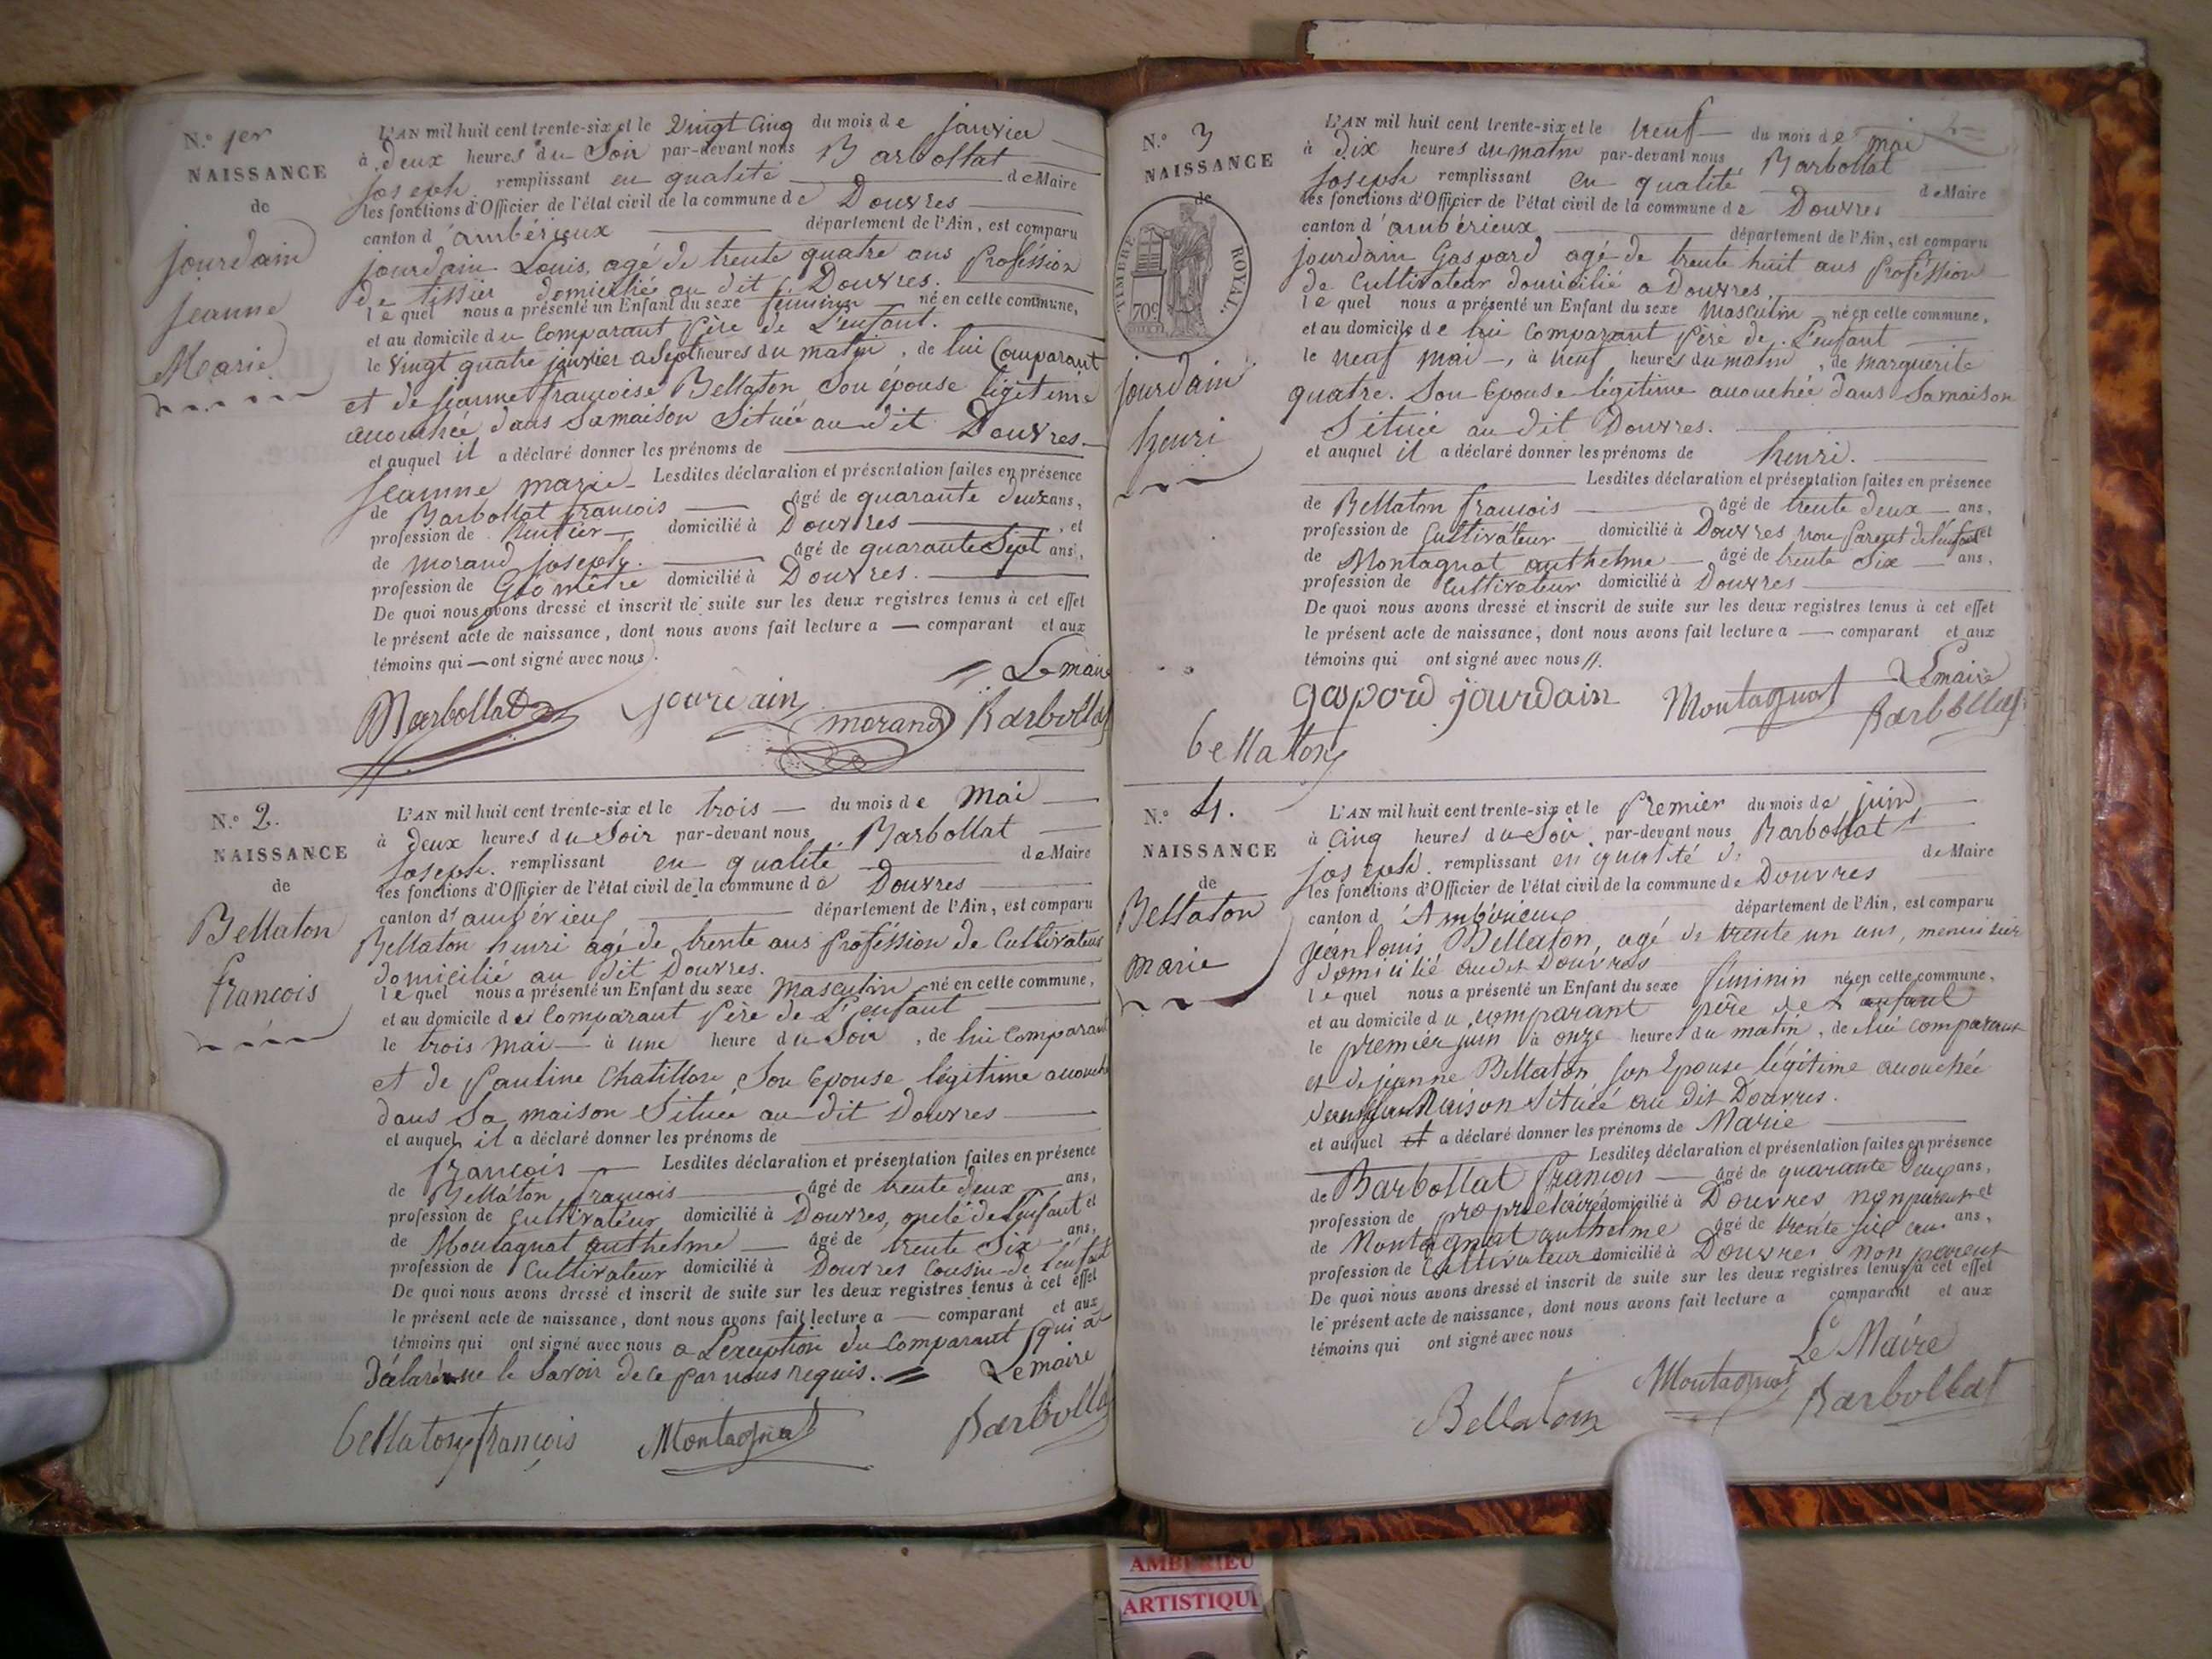 N.° 1er
NAISSANCE
de
jourdain
jeanne
Marie
L'AN mil huit cent trente-six et le Vingt Cinq du mois de janvier
à deux heures du Soir par-devant nous Barbollat
joseph remplissant en qualité de Maire
les fonctions d'Officier de l'état civil de la commune de Douvres
canton d'ambérieux département de l'Ain, est comparu
jourdain Louis, agé de trente quatre ans Proféssion
de tissier domicilié au dit Douvres.
lequel nous a présenté un Enfant du sexe féminin né en cette commune,
et au domicile du Comparant Père de L'enfant.
le Vingt quatre janvier à Sept heures du matin, de lui Comparant
et de jeanne françoise Bellaton Son épouse légitime
accouchée dans Sa maison Située au dit Douvres.
et auquel il a déclaré donner les prénoms de
jeanne marie Lesdites déclaration et présentation faites en présence
de Barbollat francois âgé de quarante deux ans,
profession de Rentier domicilié à Douvres, et
de morand joseph. âgé de quarante Sept ans,
profession de Géomètre domicilié à Douvres.
De quoi nous avons dressé et inscrit de suite sur les deux registres tenus à cet effet
le présent acte de naissance, dont nous avons fait lecture a — comparant et aux
témoins qui — ont signé avec nous.
Le maire
Barbollat jourdain morand Barbollat
N.° 2.
NAISSANCE
de
Bellaton
francois
L'AN mil huit cent trente-six et le trois du mois de Mai
à deux heures du Soir par-devant nous Barbollat
joseph. remplissant en qualité de Maire
les fonctions d'Officier de l'état civil de la commune de Douvres
canton d'ambérieux département de l'Ain, est comparu
Bellaton henri agé de trente ans Proféssion de Cultivateur
domicilié au dit Douvres.
lequel nous a présenté un Enfant du sexe Masculin né en cette commune,
et au domicile du Comparant Père de L'enfant
le trois Mai à une heure du Soir, de lui Comparant
et de Pauline Chatillon Son Epouse légitime accouchée
dans Sa maison Située au dit Douvres
et auquel il a déclaré donner les prénoms de
francois Lesdites déclaration et présentation faites en présence
de Bellaton francois âgé de trente deux ans,
profession de Cultivateur domicilié à Douvres, oncle de l'enfant et
de Montagnat anthelme âgé de trente Six ans,
profession de Cultivateur domicilié à Douvres Cousin de l'enfant
De quoi nous avons dressé et inscrit de suite sur les deux registres tenus à cet effet
le présent acte de naissance, dont nous avons fait lecture a — comparant et aux
témoins qui ont signé avec nous a L'exception du Comparant qui a
déclaré ne le Savoir de ce par nous requis.
Le maire
bellaton françois Montagnat Barbollat
N.° 3
NAISSANCE
de
TIMBRE ROYAL.
70c
jourdain
henri
L'AN mil huit cent trente-six et le neuf du mois de mai
à Dix heures du matin par-devant nous Barbollat
joseph remplissant en qualité de Maire
les fonctions d'Officier de l'état civil de la commune de Douvres
canton d'ambérieux département de l'Ain, est comparu
jourdain Gaspard agé de trente huit ans Proféssion
de Cultivateur domicilié a Douvres,
lequel nous a présenté un Enfant du sexe Masculin né en cette commune,
et au domicile de lui Comparant Père de L'enfant
le neuf mai, à neuf heures du matin, de marguerite
quatre. Son Epouse légitime accouchée dans Sa maison
Située au dit Douvres.
et auquel il a déclaré donner les prénoms de henri.
Lesdites déclaration et présentation faites en présence
de Bellaton francois âgé de trente deux ans,
profession de Cultivateur domicilié à Douvres non Parent de l'enfant et
de Montagnat anthelme âgé de trente Six ans,
profession de Cultivateur domicilié à Douvres
De quoi nous avons dressé et inscrit de suite sur les deux registres tenus à cet effet
le présent acte de naissance, dont nous avons fait lecture a — comparant et aux
témoins qui ont signé avec nous.
Le maire
gaspard jourdain Montagnat Barbollat
bellaton
N.° 4.
NAISSANCE
de
Bellaton
marie
L'AN mil huit cent trente-six et le Premier du mois de juin
à Cinq heures du Soir par-devant nous Barbollat
joseph. remplissant en qualité de de Maire
les fonctions d'Officier de l'état civil de la commune de Douvres
canton d'Ambérieux département de l'Ain, est comparu
jean louis Bellaton, agé de trente un ans, menuisier
domicilié audit Douvres
lequel nous a présenté un Enfant du sexe féminin né en cette commune,
et au domicile du comparant père de L'enfant
le premier juin à onze heures du matin, de lui comparant
et de jeanne Bellaton son Epouse légitime accouchée
dans sa Maison située au dit Douvres.
et auquel il a déclaré donner les prénoms de Marie
Lesdites déclaration et présentation faites en présence
de Barbollat francois âgé de quarante deux ans,
profession de propriétaire domicilié à Douvres non parent et
de Montagnat anthelme âgé de trente six ans ans,
profession de Cultivateur domicilié à Douvres non parent
De quoi nous avons dressé et inscrit de suite sur les deux registres tenus à cet effet
le présent acte de naissance, dont nous avons fait lecture a comparant et aux
témoins qui ont signé avec nous
Le Maire
Bellaton Montagnat Barbollat
AMBERIEU
ARTISTIQU